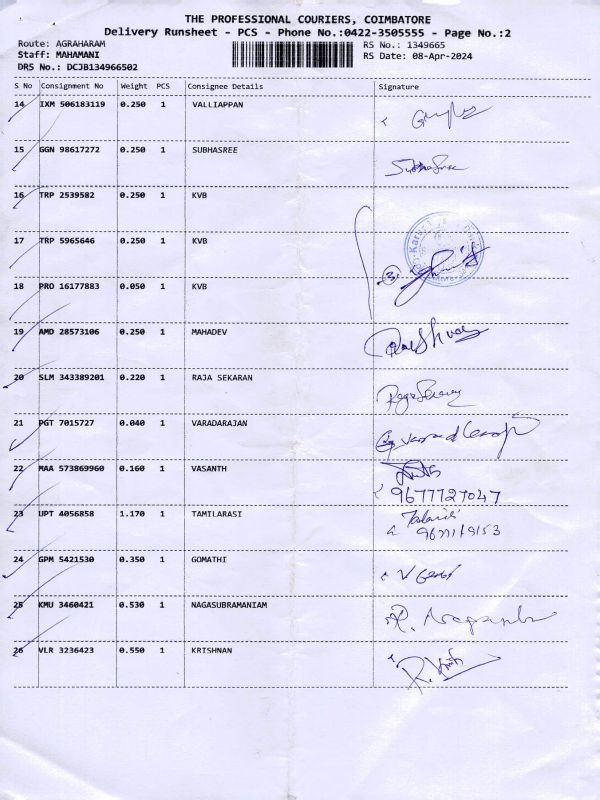 THE PROFESSIONAL COURIERS, COIMBATORE
Delivery Runsheet - PCS - Phone No.:0422-3505555 - Page No.:2
Route: AGRAHARAM RS No.: 1349665
Staff: MAHAMANI RS Date: 08-Apr-2024
DRS No.: DCJB134966502
S No Consignment No Weight PCS Consignee Details Signature
14 IXM 506183119 0.250 1 VALLIAPPAN
15 GGN 98617272 0.250 1 SUBHASREE
16 TRP 2539582 0.250 1 KVB
17 TRP 5965646 0.250 1 KVB
18 PRO 16177883 0.050 1 KVB 3
19 AMD 28573106 0.250 1 MAHADEV
20 SLM 343389201 0.220 1 RAJA SEKARAN
21 PGT 7015727 0.040 1 VARADARAJAN
22 MAA 573869960 0.160 1 VASANTH
9677727047
23 UPT 4056858 1.170 1 TAMILARASI
24 GPM 5421530 0.350 1 GOMATHI
25 KMU 3460421 0.530 1 NAGASUBRAMANIAM
26 VLR 3236423 0.550 1 KRISHNAN